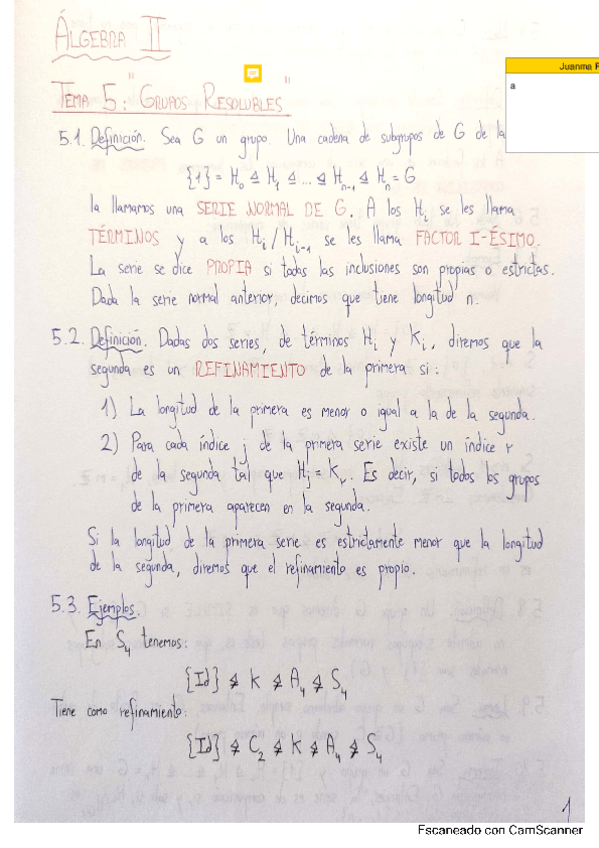 ÁLGEBRA II
TEMA 5: "GRUPOS RESOLUBLES"
Juanma
a
5.1. Definición. Sea G un grupo. Una cadena de subgrupos de G de la
{1} = H₀ ⊴ H₁ ⊴ ... ⊴ Hₙ₋₁ ⊴ Hₙ = G
la llamamos una SERIE NORMAL DE G. A los Hᵢ se les llama
TÉRMINOS y a los Hᵢ/Hᵢ₋₁ se les llama FACTOR I-ÉSIMO.
La serie se dice PROPIA si todas las inclusiones son propias o estrictas.
Dada la serie normal anterior, decimos que tiene longitud n.
5.2. Definición. Dadas dos series, de términos Hᵢ y Kᵢ, diremos que la
segunda es un REFINAMIENTO de la primera si:
1) La longitud de la primera es menor o igual a la de la segunda.
2) Para cada índice j de la primera serie existe un índice r
de la segunda tal que Hⱼ = Kᵣ. Es decir, si todos los grupos
de la primera aparecen en la segunda.
Si la longitud de la primera serie es estrictamente menor que la longitud
de la segunda, diremos que el refinamiento es propio.
5.3. Ejemplos.
En S₄ tenemos:
{Id} ⋬ K ⋬ A₄ ⋬ S₄
Tiene como refinamiento:
{Id} ⋬ C₂ ⋬ K ⋬ A₄ ⋬ S₄
1
Escaneado con CamScanner